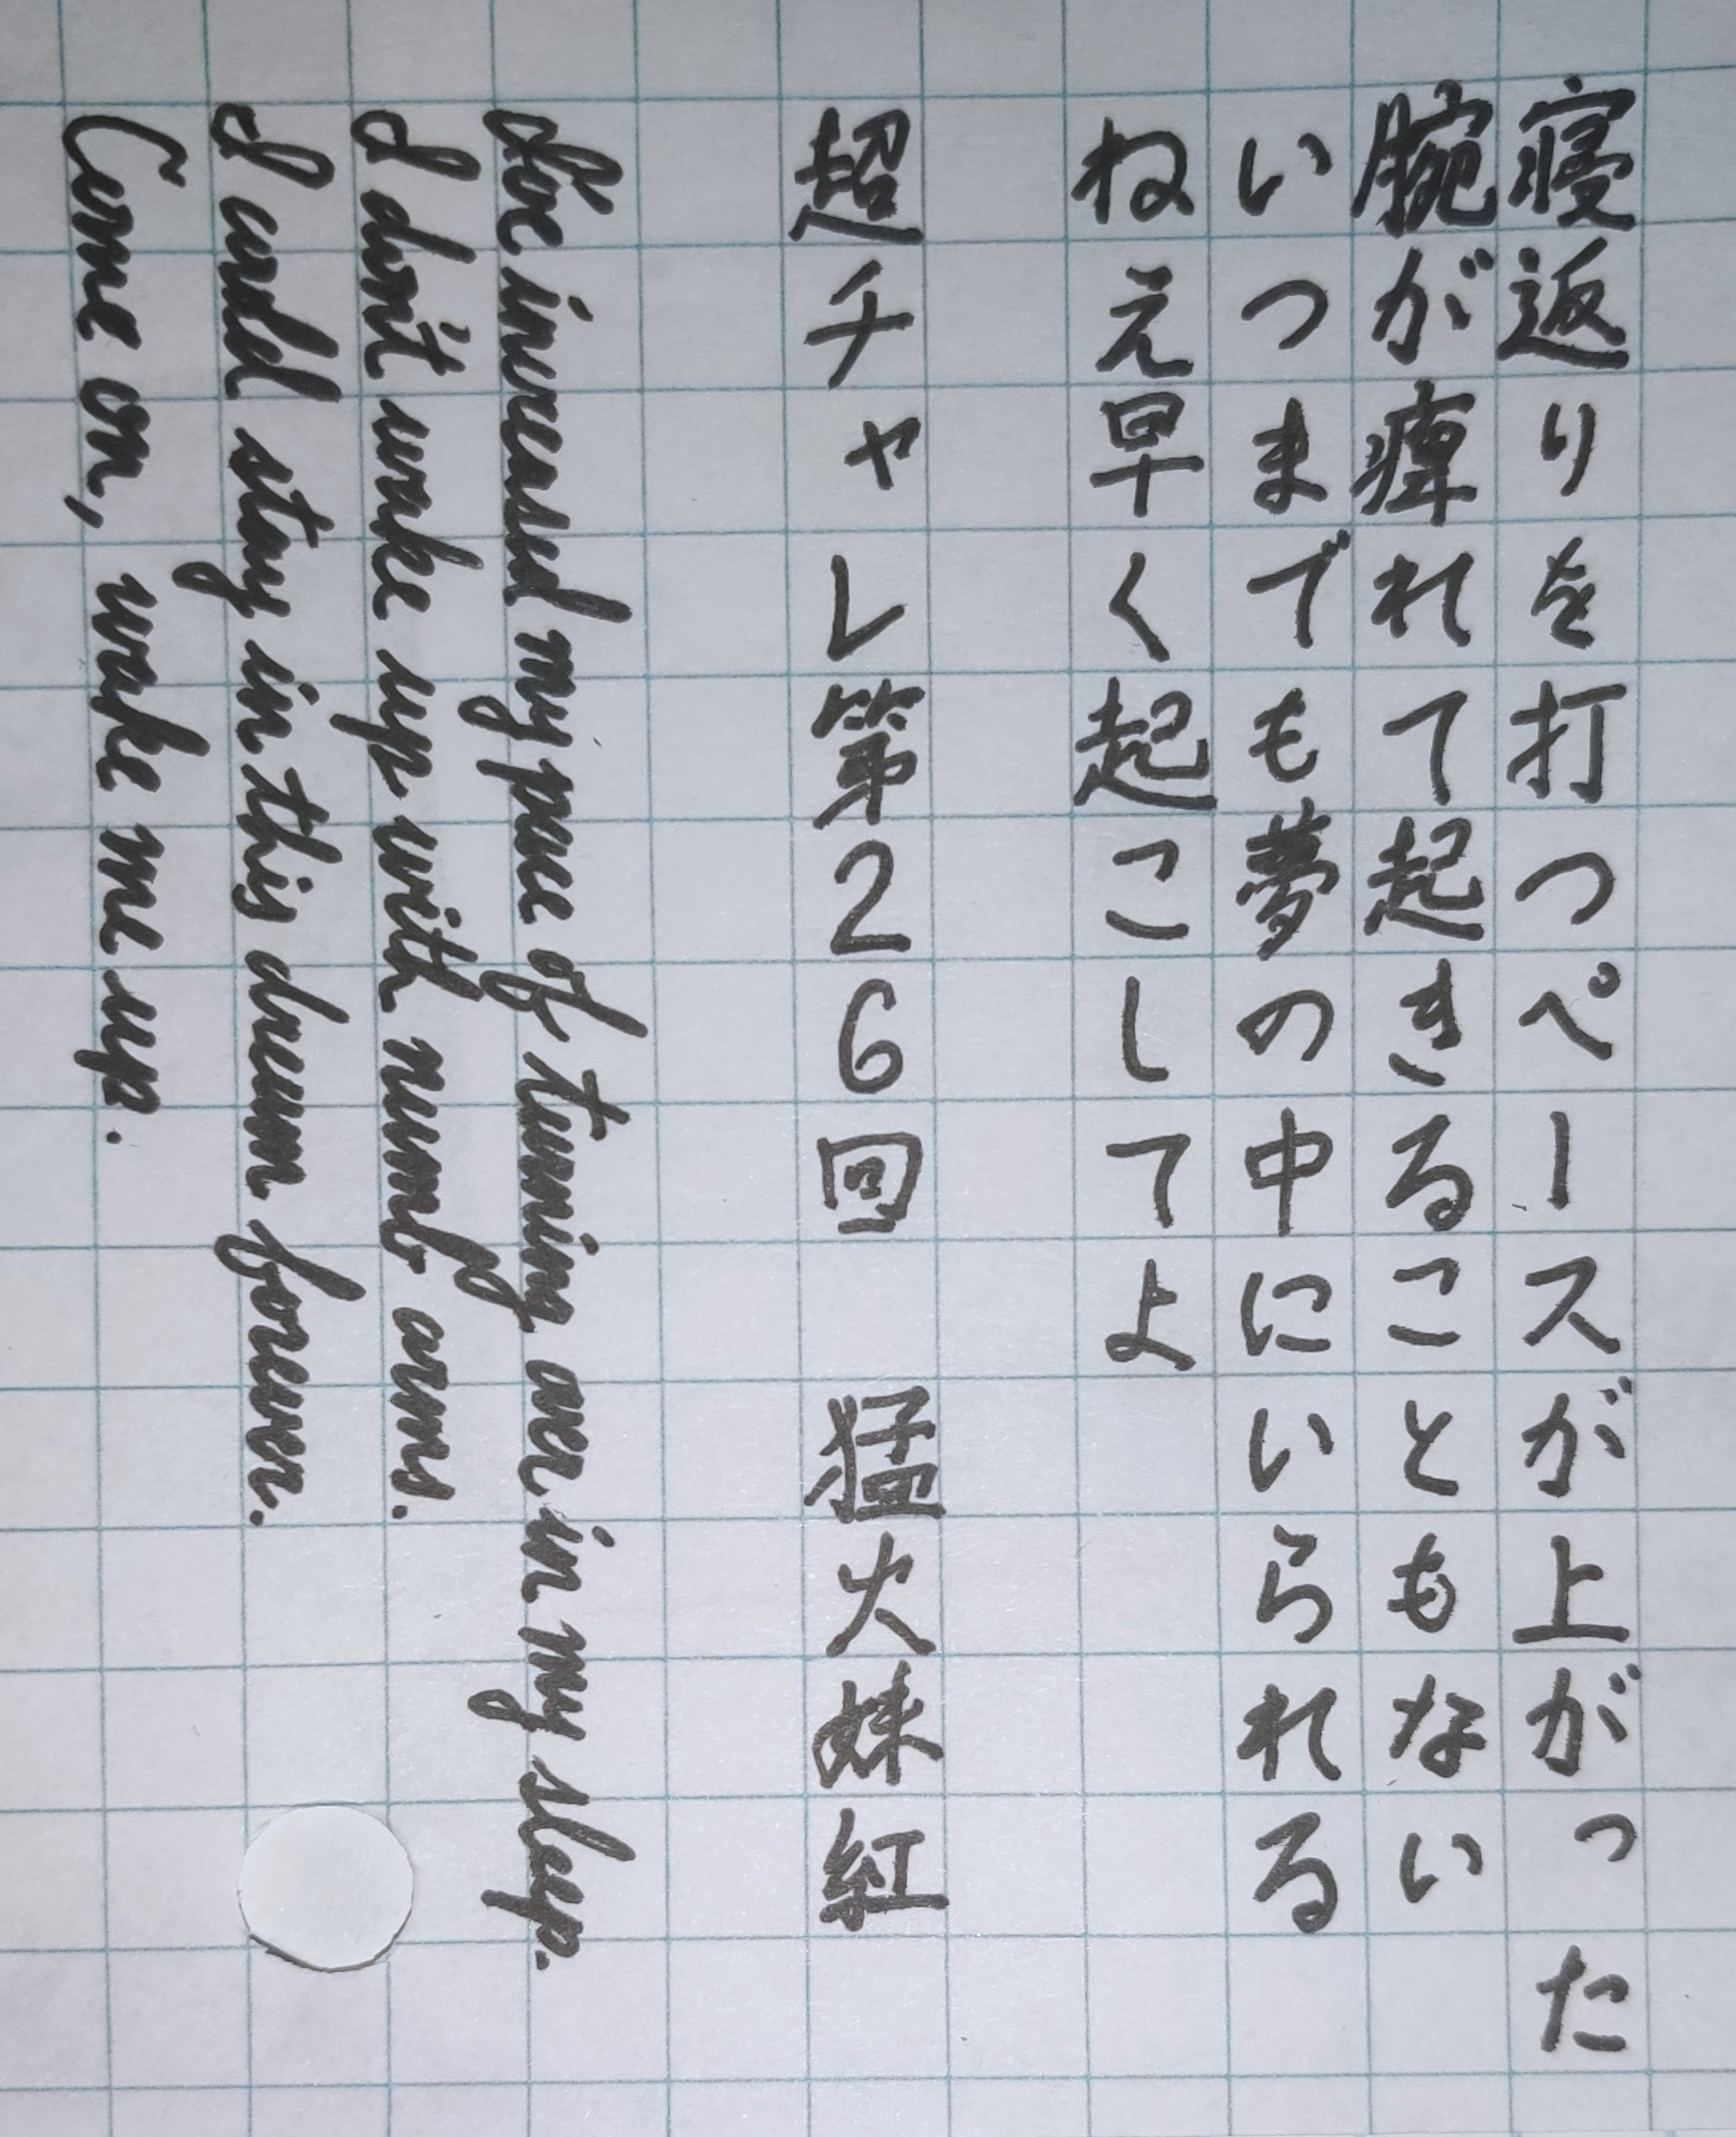 寝返りを打つペースが上がった
腕が痺れて起きることもない
いつまでも夢の中にいられる
ねえ早く起こしてよ
超チャレ第26回　猛火妹紅
I've increased my pace of turning over in my sleep.
I don't wake up with numb arms.
I could stay in this dream forever.
Come on, wake me up.